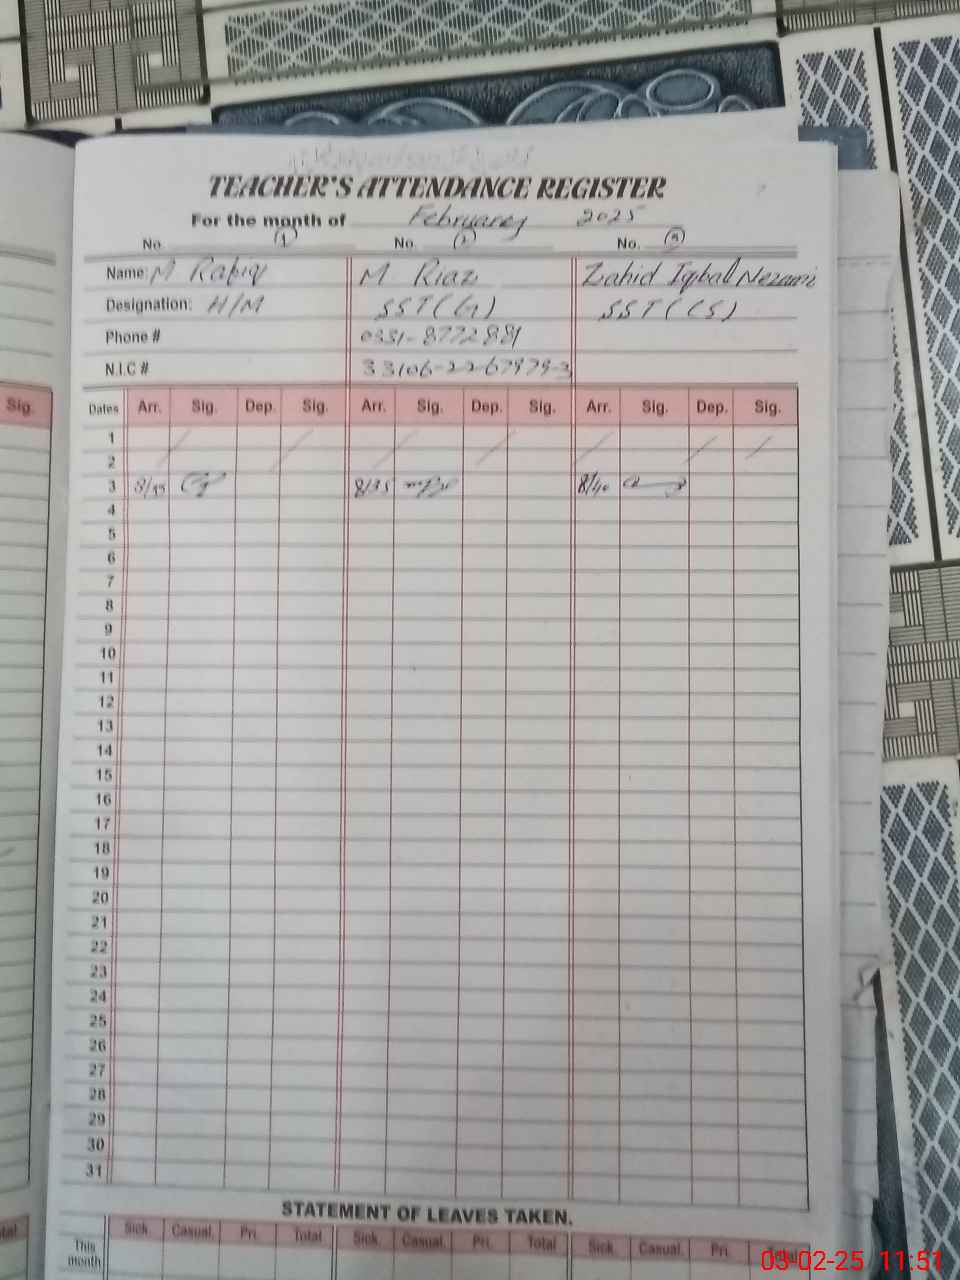 TEACHER'S ATTENDANCE REGISTER
For the month of February 2025
No. (1) No. (2) No. (3)
Name: M Rafiq M Riaz Zahid Iqball Nezami
Designation: H/M SST(G) SST(CS)
Phone # 0331-8772881
N.I.C # 33106-2267979-3
Sig.
Dates Arr. Sig. Dep. Sig. Arr. Sig. Dep. Sig. Arr. Sig. Dep. Sig.
1
2
3 8/35 8/35 8/40
4
5
6
7
8
9
10
11
12
13
14
15
16
17
18
19
20
21
22
23
24
25
26
27
28
29
30
31
STATEMENT OF LEAVES TAKEN.
Sick. Casual. Pri. Total Sick. Casual. Pri. Total Sick. Casual. Pri. Total
This
month
03-02-25 11:51